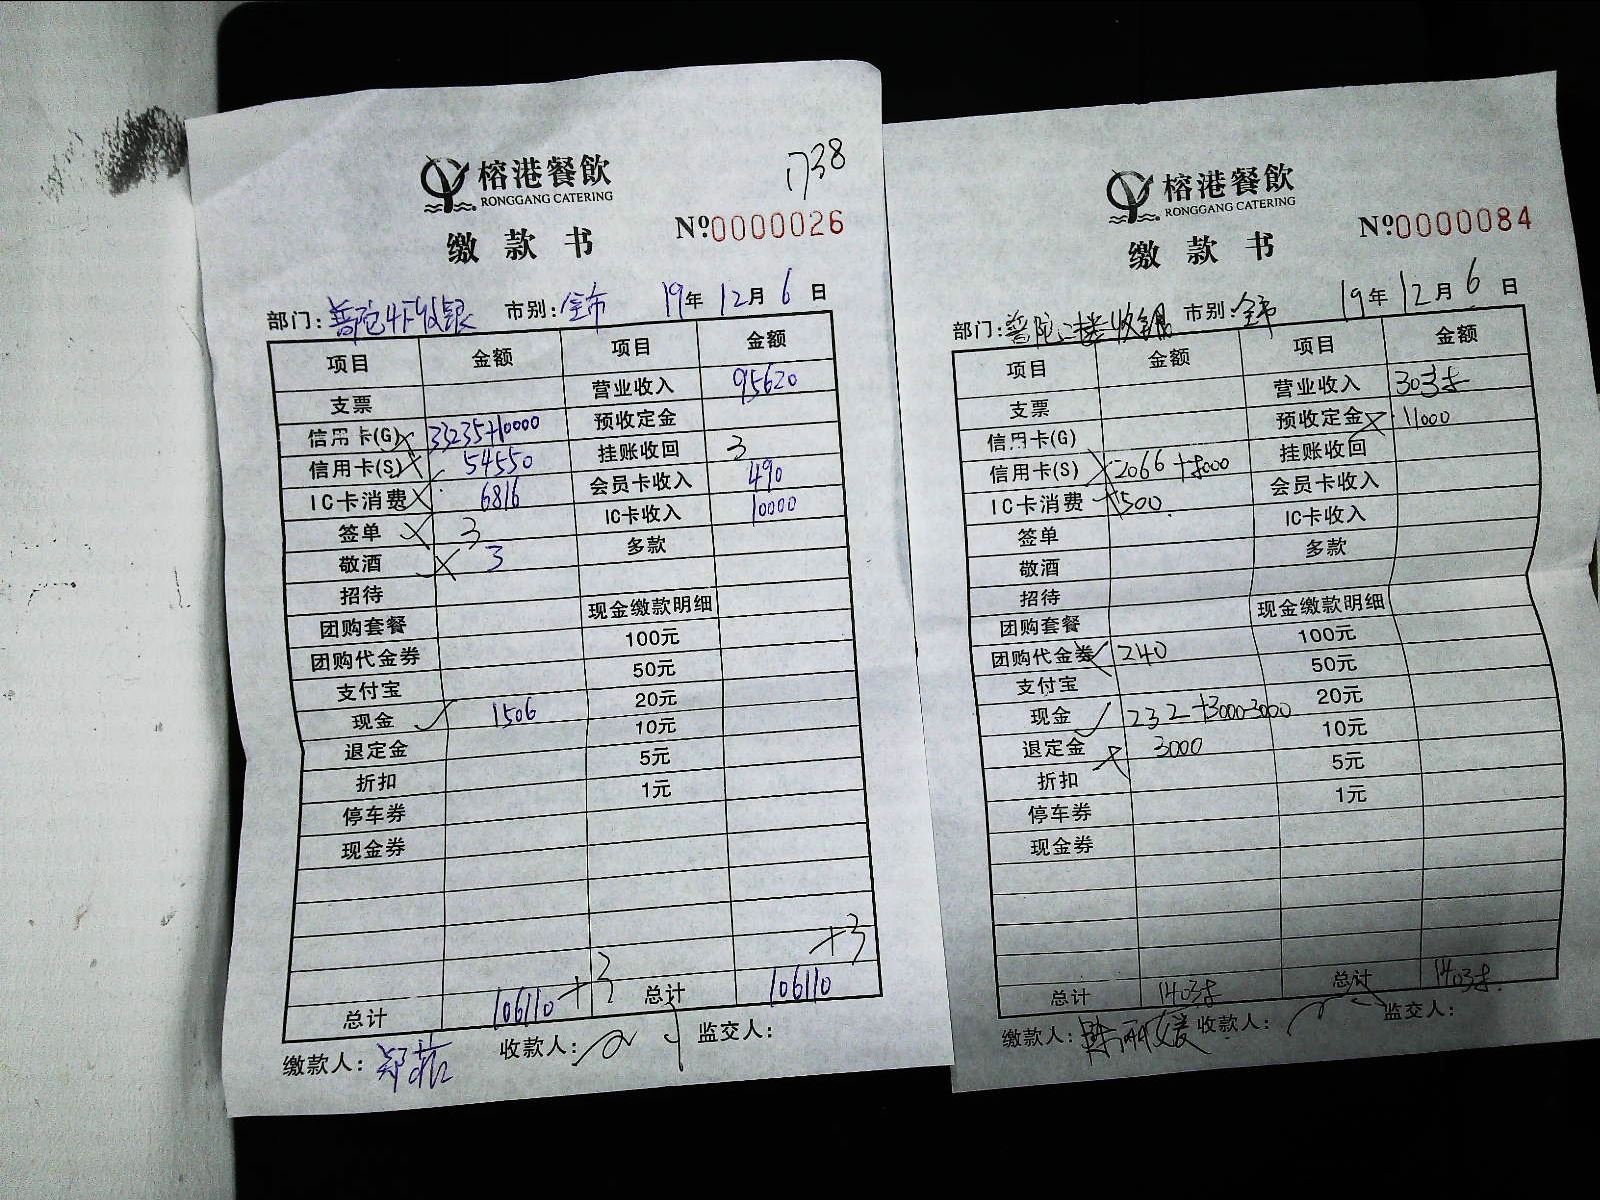 榕港餐飲
RONGGANG CATERING
1738
缴款书
Nº:0000026
部门:普陀 收银 市别:全市 19年12月6日
项目 金额 项目 金额
支票 营业收入 95620
信用卡(G) 33235+10000 预收定金
信用卡(S) 54550 挂账收回 3
IC卡消费 6816 会员卡收入 490
签单 3 IC卡收入 10000
敬酒 3 多款
招待
团购套餐 现金缴款明细
团购代金券 100元
支付宝 50元
现金 1506 20元
退定金 10元
折扣 5元
停车券 1元
现金券
+3 +3
总计 106110 总计 106110
缴款人: 收款人: 监交人:
榕港餐飲
RONGGANG CATERING
缴款书
Nº:0000084
部门:普陀二楼收银 市别:全市 19年12月6日
项目 金额 项目 金额
支票 营业收入
信用卡(G) 预收定金 11000
信用卡(S) 2066+8000 挂账收回
IC卡消费 500 会员卡收入
签单 IC卡收入
敬酒 多款
招待
团购套餐 现金缴款明细
团购代金券 240 100元
支付宝 50元
现金 232+3000-3000 20元
退定金 3000 10元
折扣 5元
停车券 1元
现金券
总计 总计
缴款人: 收款人: 监交人: